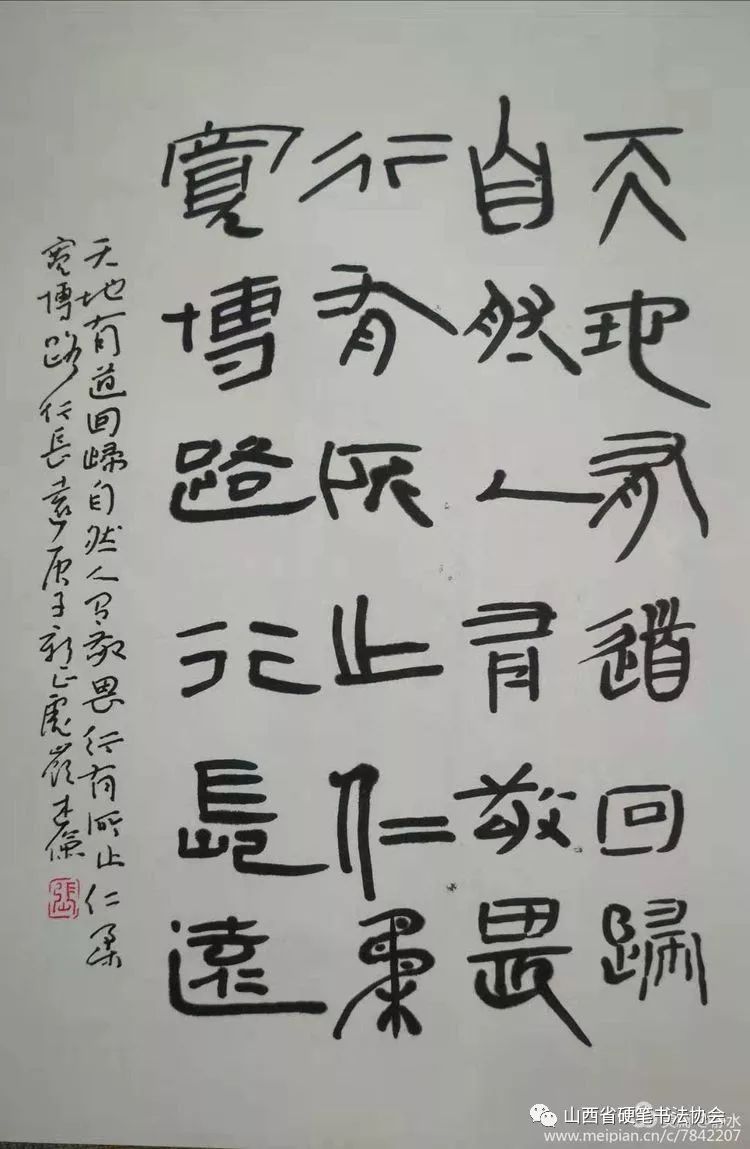 天地有道回歸
自然人有敬畏
行有所止仁柔
寬博路行長遠
天地有道回歸自然人有敬畏行有所止仁柔
寬博路行長遠庚子新正
張
山西省硬笔书法协会
www.meipian.cn/c/7842207